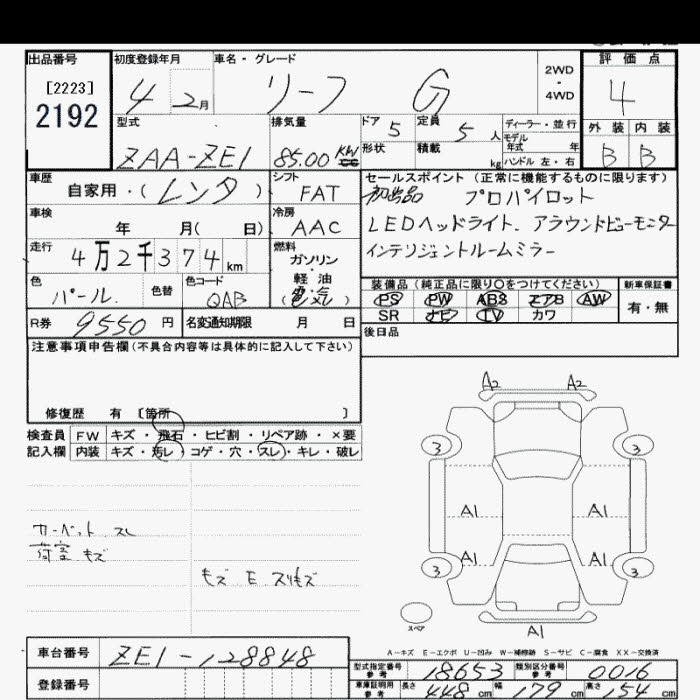 出品番号
[2223]
2192
初度登録年月
4 2月
車名・グレード
リーフ G
2WD
・
4WD
評価点
4
外装 内装
B B
型式
ZAA-ZE1
排気量
85.00 KW
ドア 5
定員 5人
ディーラー・並行
モデル年式 年
形状
積載 kg
ハンドル 左・右
車歴
自家用・(レンタ)
シフト
FAT
車検
年 月( 日)
冷房
AAC
走行
4万2千374km
燃料
ガソリン
・
軽油
(電気)
色
パール.
色替
色コード
QAB
R券 9550円
名変通知期限 月 日
セールスポイント (正常に機能するものに限ります)
初出品 プロパイロット
LEDヘッドライト. アラウンドビューモニター
インテリジェントルームミラー
装備品 (純正品に限り○をつけてください)
PS PW ABS エアB AW
SR ナビ TV カワ
新車保証書
有・無
後日品
注意事項申告欄 (不具合内容等は具体的に記入して下さい)
修復歴 有 〔箇所 〕
検査員 記入欄
FW キズ・飛石・ヒビ割・リペア跡・×要
内装 キズ・汚レ・コゲ・穴・スレ・キレ・破レ
カーペット スレ
荷室 キズ
キズ E スリキズ
A2 A2
3 3
A1 A1
A1 A1
3 3
スペア
A1
A-キズ E-エクボ U-凹み W-補修跡 S-サビ C-腐食 XX-交換済
車台番号 ZE1-128848
登録番号
型式指定番号 参考 18653
類別区分番号 参考 0016
車庫証明用 参考 長さ 448cm 幅 179cm 高さ 154cm